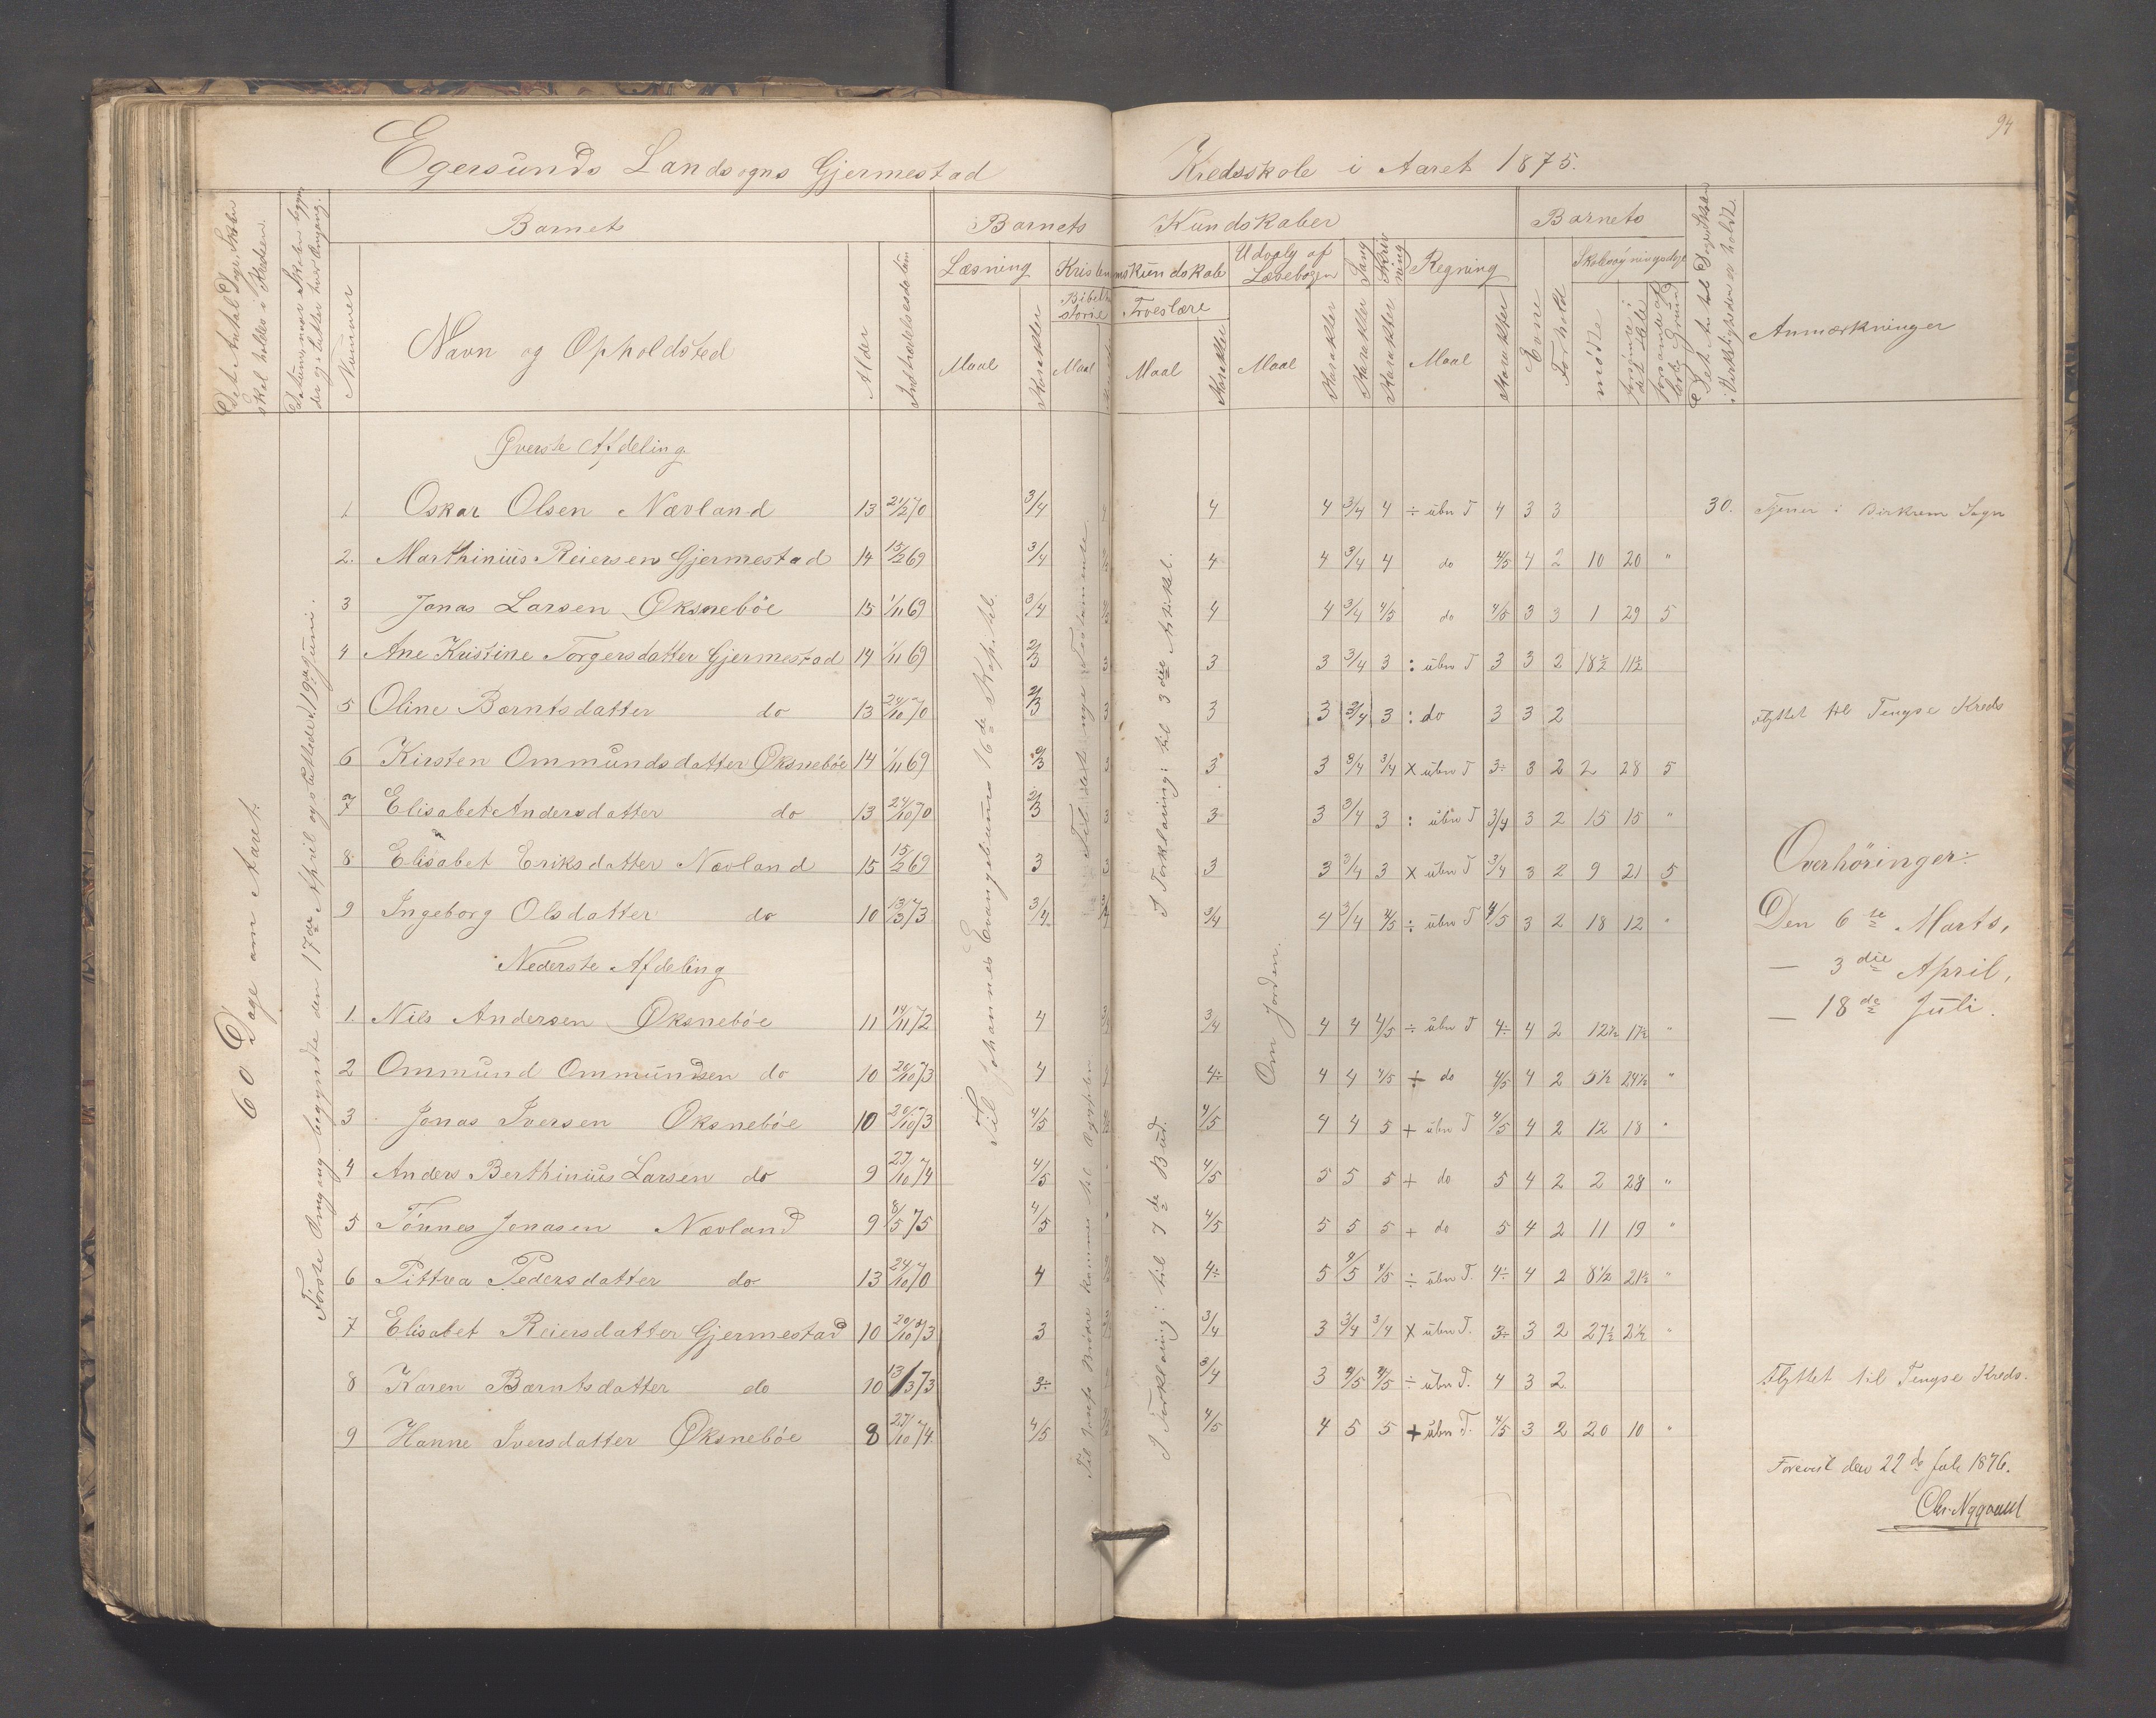 94
Egersunds Landsogns Gjermestad Kredsskole i Aaret 1875.
Det Antal Dage Skolen skal holdes i Kredsen.
Datum, naar Skolen begynder og slutter hver Omgang.
Nummer
Barnets
Navn og Opholdsted
Alder
Indtrædelsesdatum
Barnets Kundskaber
Læsning
Maal
Karakter
Kristendomskundskab
Bibelhistorie
Maal
Troeslære
Maal
Karakter
Udvalg af Læsebogen
Maal
Karakter
Sang
Karakter
Skrivning
Karakter
Regning
Maal
Karakter
Barnets
Evne
Forhold
Skolesøgningsdage
mødte
forsømte i det Hele
forsømte af lovl. Grund
Det Antal Dage Skolen i Virkeligheden er holdt.
Anmærkninger
60 Dage om Aaret.
Første Omgang begyndte den 17de April og sluttede d. 19de Juni.
Til Johannes Evangeliums 16de Kapitel.
Til det nye Testamente
I Forklaring: til 3die Artikel.
Til Josefs Brødre kommer til Ægypten
I Forklaring: til 7de Bud.
Om Jorden.
Øverste Afdeling
1 Oskar Olsen Nævland 13 21/2 70 3/4 4 4 3/4 4 ÷ übn T 4 3 3 30. Tjener i Birkrem Sogn
2. Marthinius Reiersen Gjermestad 14 15/2 69 3/4 4 4 3/4 4 do 4/5 4 2 10 20 "
3 Jonas Larsen Øksnebøe 15 1/11 69 3/4 4 4 3/4 4/5 do 4/5 3 3 1 29 5
4 Ane Kristine Torgersdatter Gjermestad 14 1/11 69 2/3 3 3 3 3/4 3 : übn T 3 3 2 18½ 11½
5 Oline Barntsdatter do 13 24/10 70 2/3 3 3 3 3/4 3 : do 3 3 2 Flyttet til Tengse Kreds
6 Kirsten Ommundsdatter Øksnebøe 14 1/11 69 2/3 3 3 3 3/4 3/4 × übn T 3÷ 3 2 2 28 5
7 Elisabet Andersdatter do 13 24/10 70 2/3 3 3 3 3/4 3 : übn T 3/4 3 2 15 15 "
8 Elisabet Eriksdatter Nævland 15 15/2 69 3 3 3 3 3/4 3 × übn T 3/4 3 2 9 21 5
9 Ingeborg Olsdatter do 10 13/3 73 3/4 3/4 3/4 4 3/4 4/5 ÷ übn T 4/5 3 2 18 12 "
Overhöringer:
Den 6te Marts,
— 3die April,
— 18de Juli.
Nederste Afdeling
1. Nils Andersen Øksnebøe 11 14/11 72 4 3/4 4 4 4/5 ÷ übn T 4÷ 4 2 12½ 17½ "
2 Ommund Ommundsen do 10 20/10 73 4 4÷ 4 4 4/5 + do 4/5 4 2 5½ 24½ "
3 Jonas Iversen Øksnebøe 10 20/10 73 4/5 4/5 4 4 5 + übn T 4/5 4 2 12 18 "
4 Anders Berthinius Larsen do 9 27/10 74 4/5 4/5 5 5 5 + do 5 4 2 2 28 "
5 Tönnes Jonasen Nævland 9 8/5 75 4/5 4/5 5 5 5 + do 5 4 2 11 19 "
6 Pittrea Pedersdatter do 13 24/10 70 4 4÷ 5 4/5 4/5 ÷ übn T. 4÷ 4 2 8½ 21½ "
7 Elisabet Reiersdatter Gjermestad 10 20/10 73 3 3/4 3 3/4 3/4 × übn T. 3÷ 3 2 27½ 2½ "
8 Karen Barntsdatter do 10 13/3 73 3÷ 3/4 3 4/5 4/5 ÷ übn T. 4 3 2 Flyttet til Tengse Kreds.
9 Hanne Iversdatter Øksnebøe 8 27/10 74 4/5 4/5 4 5 5 + übn T. 4/5 3 2 20 10 "
Forevist den 22de 1876.